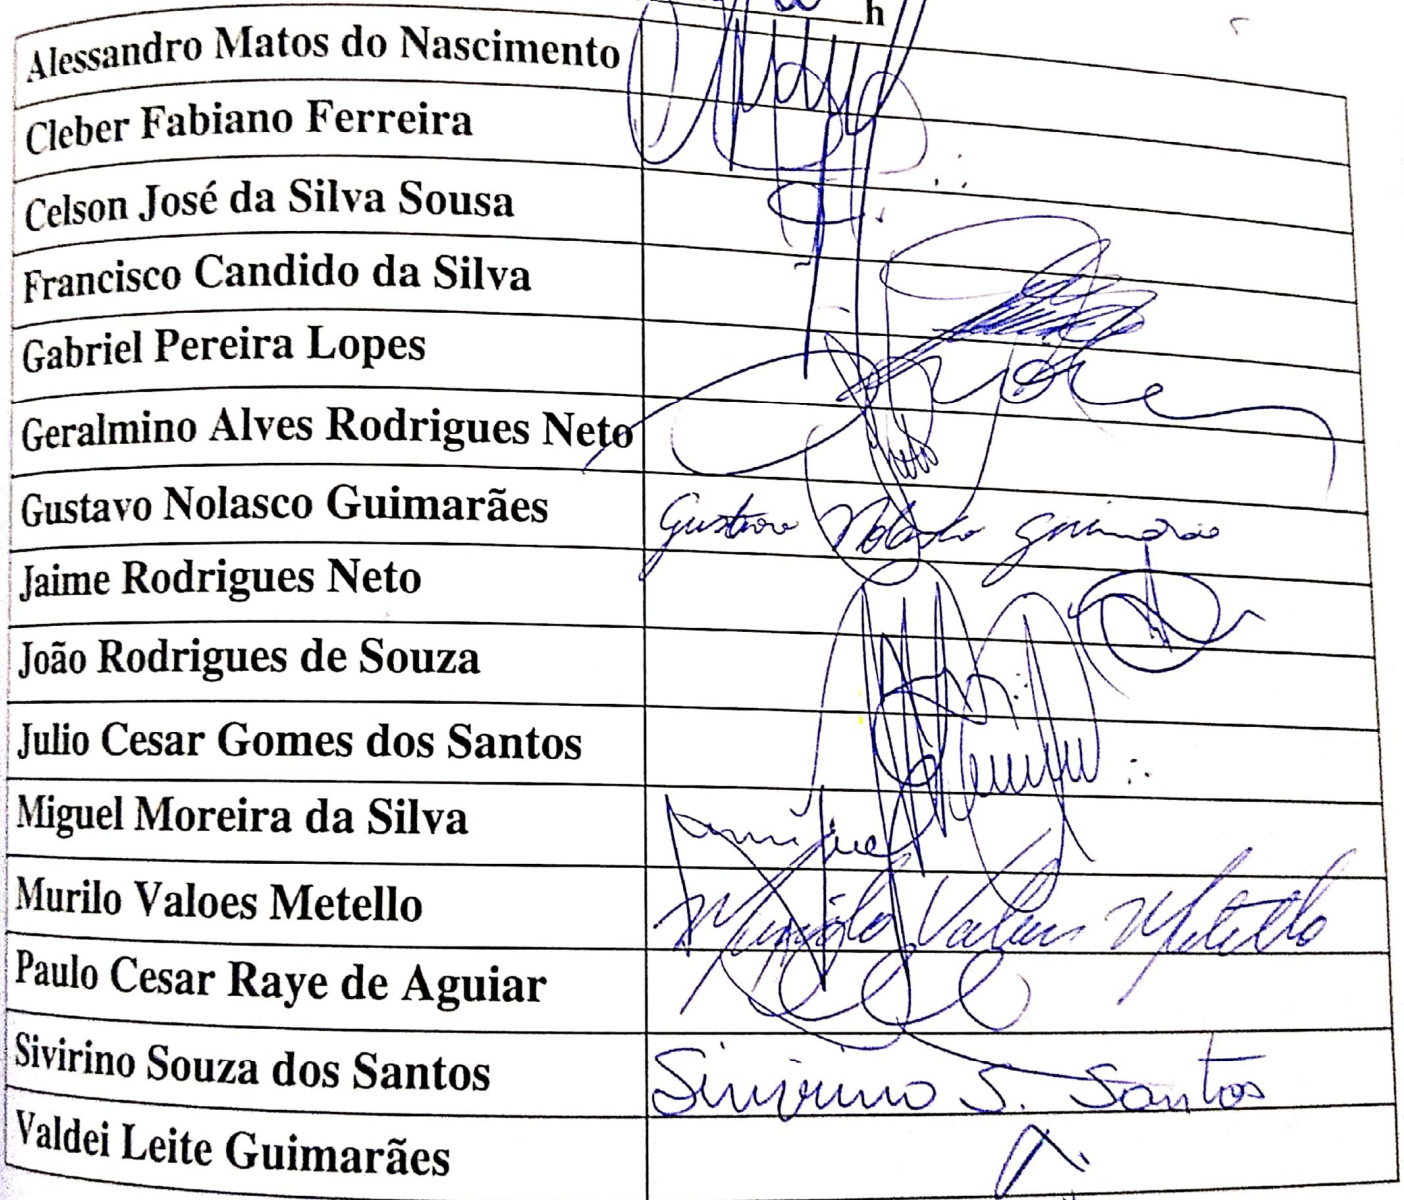 h
Alessandro Matos do Nascimento
Cleber Fabiano Ferreira
Celson José da Silva Sousa
Francisco Candido da Silva
Gabriel Pereira Lopes
Geralmino Alves Rodrigues Neto
Gustavo Nolasco Guimarães Gustavo Nolasco Guimarães
Jaime Rodrigues Neto
João Rodrigues de Souza
Julio Cesar Gomes dos Santos
Miguel Moreira da Silva Miguel
Murilo Valoes Metello Murilo Valoes Metello
Paulo Cesar Raye de Aguiar
Sivirino Souza dos Santos Sivirino S. Santos
Valdei Leite Guimarães